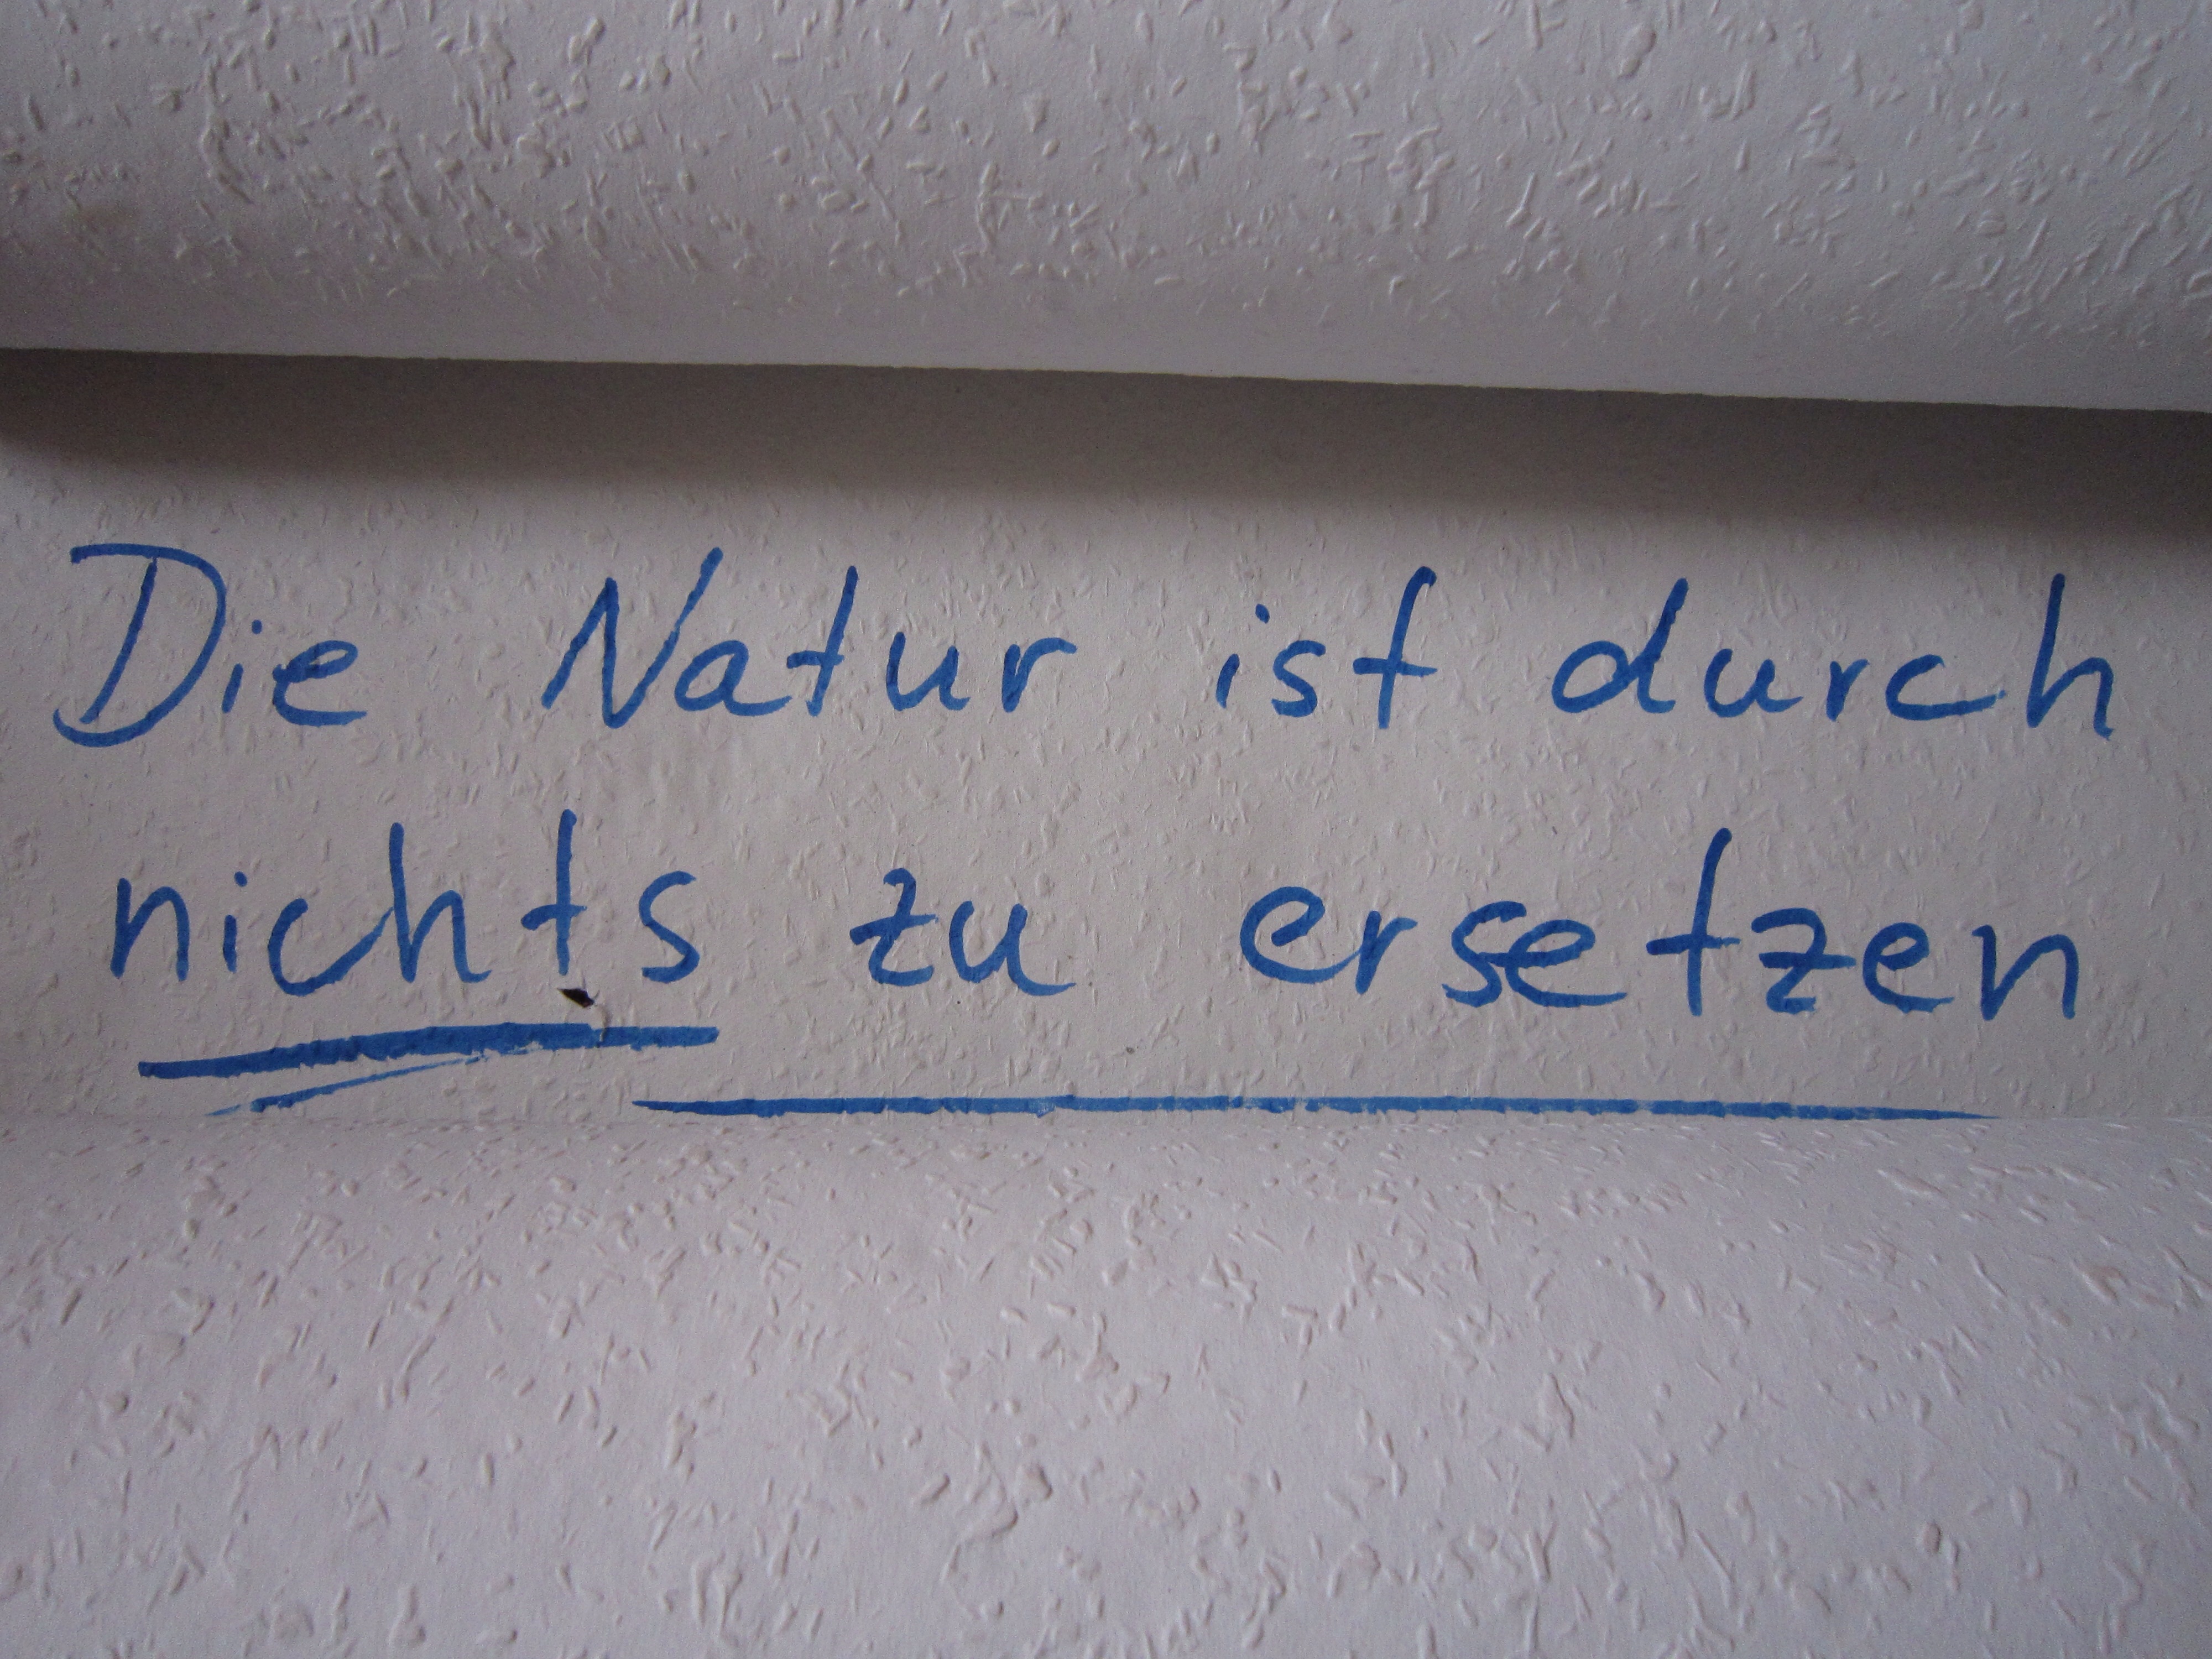 Die Natur ist durch
nichts zu ersetzen